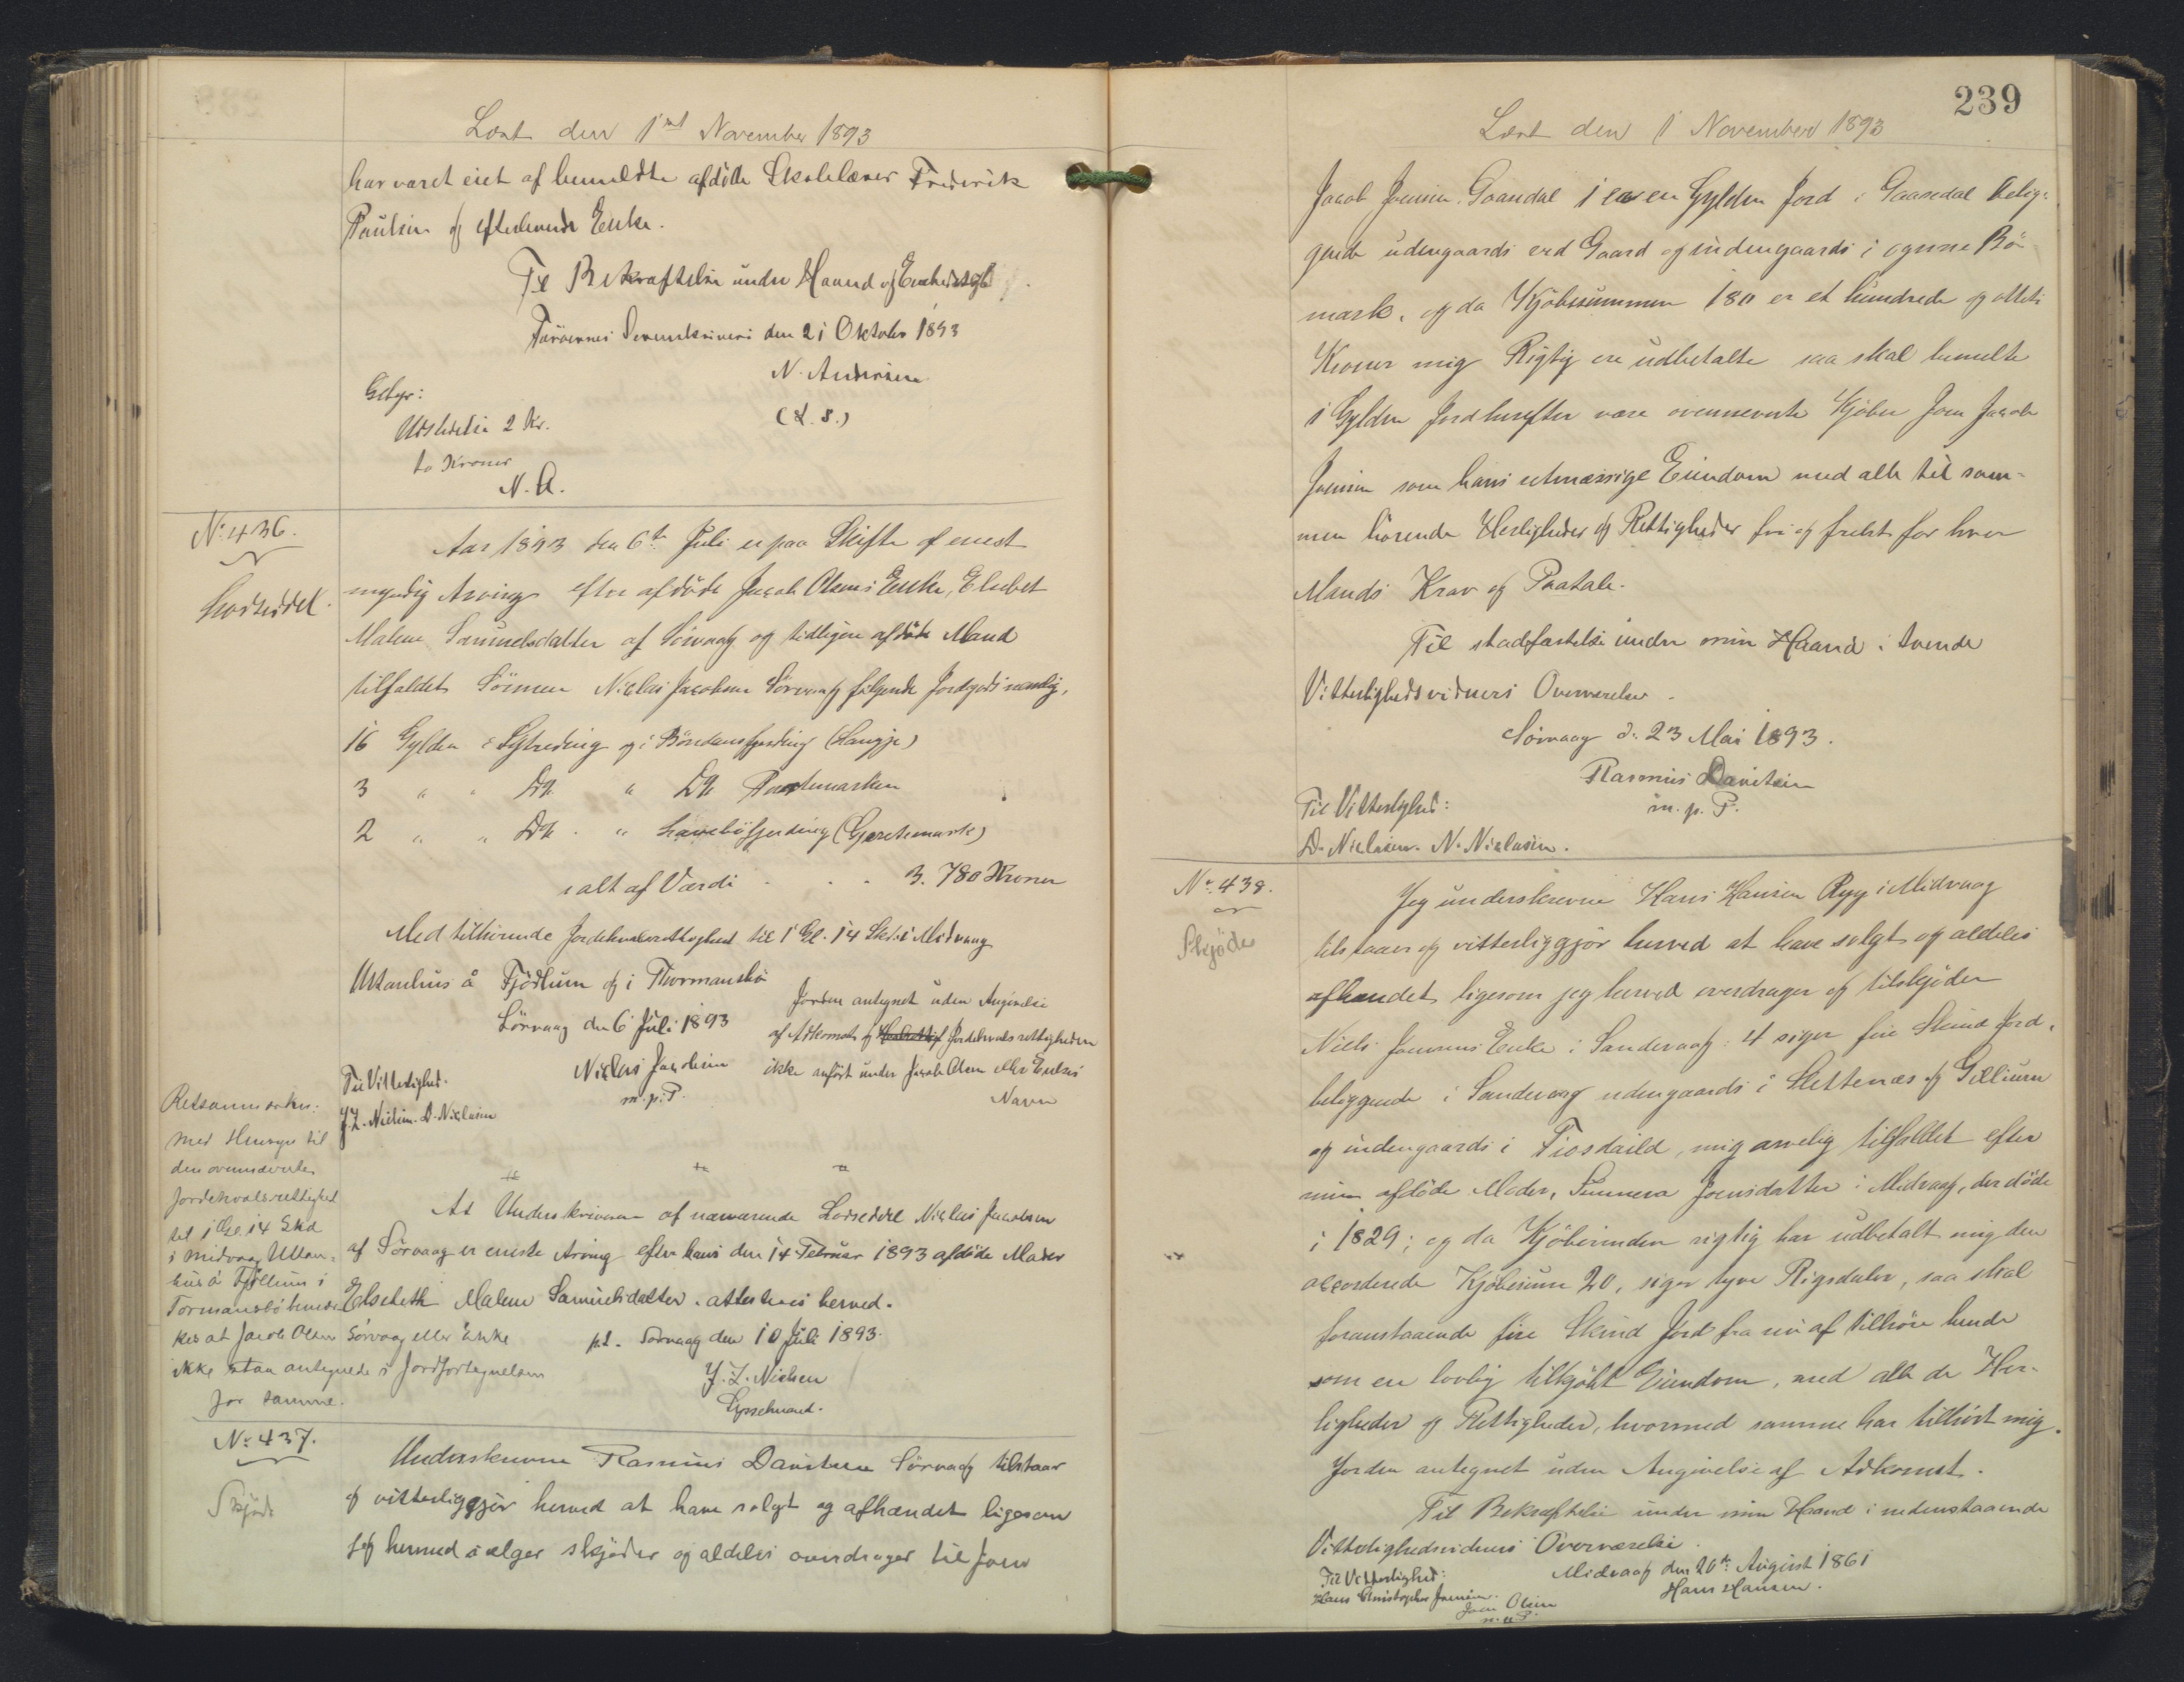 Læst den 1ste November 1893
har været eiet af bemeldte afdöde Skolelærer Frederik
Paulsen og efterlevende Enke.
Til Bekræftelse under Haand og Embedssegl
Færøernes Sorenskriveri den 21 Oktober 1893
N. Andersen
(L. S.)
Gebyr:
Udstedelse 2 Kr.
to Kroner
N. A.
No. 436.
Lodseddel.
Aar 1893 den 6te Juli er paa Skifte af enest
myndig Arving efter afdöde Jacob Olsens Enke, Elsebet
Malene Samuelsdatter af Sörvaag og tidligere afdöde Mand
tilfaldet Sönnen Niclas Jacobsen Sörvaag følgende Jordgods nemlig,
16 Gylden i Sytreding og i Böndansfjerding (Haugje)
3 " " Do " Do
2 " " Do " (Gjeretemark)
ialt af Værdi . . . 3. 780 Kroner
Med tilhörende Jordehvalsrettighed til 1 Gl. 14 Sk. i Midvaag
Uttanhus å Fjödlum og i Thormansbö
Sörvaag den 6 Juli 1893
Niclas Jacobsen
m. p. P.
Jorden antegnet uden Angivelse
af Adkomst og Jordehvalsrettigheden
ikke anfört under Jacob Olsen eller Enkes
Navn
Til Vitterlighed.
J. Z. Nielsen. D. Niclasen
Retsanmærkn:
Med Hensyn til
den ovennævnte
Jordehvalsrettighed
til 1 Gl. 14 Skd
i Midvaag Uttan-
hus å Fjöllum i
Tormansbö bemær-
kes at Jacob Olsen Sörvaag eller Enke
ikke staa antegnede i Jordfortegnelsen
for samme.
At Underskriveren af nærværende Lodseddel Niclas Jacobsen
af Sörvaag er eneste Arving efter hans den 14 Februar 1893 afdöde Moder
Elsebeth Malene Samuelsdatter, attesteres herved.
p.t. Sörvaag den 10 Juli 1893.
J. Z. Nielsen
Sysselmand.
No. 437.
Skjöde
Underskrevne Rasmus Davidsen Sörvaag tilstaar
og vitterliggjör herved at have solgt og afhændet ligesom
jeg herved sælger skjöder og aldeles overdrager til Joen
239
Læst den 1 November 1893
Jacob Joensen, Gaasedal 1 en Gylden Jord i Gaasedal belig-
gende udengaards ved Gaard og indengaards i ognene Bö-
mark, og da Kjöbesummen 180 er et hundrede og otteti
Kroner mig Rigtig ere udbetalte saa skal bemelte
1 Gylden Jord herefter være ovennevnte Kjöber Joen Jacob
Joensen som hans retmæssige Eiendom med alle til sam-
men hörende Herligheder og Rettigheder fri og frelst for hver
Mands Krav og Paatale.
Til stadfæstelse under min Haand i tvende
Vitterlighedsvidners Overværelse.
Sörvaag d. 23 Mai 1893.
Rasmus Davidsen
m. p. P.
Til Vitterlighed:
D. Niclasen. N. Niclasen.
No. 438.
Skjöde
Jeg underskrevne Hans Hansen Ryg i Midvaag
tilstaaer og vitterliggjör herved at have solgt og aldeles
afhændet ligesom jeg herved overdrager og tilskjöder
Niels Joensens Enke i Sandevaag: 4 siger fire Skind Jord,
beliggende i Sandevaag udengaards i Slettenæs og Gillium
og indengaards i Fiosdaild, mig arvelig tilfaldet efter
min afdöde Moder, Sunneva Joensdatter i Midvaag, der döde
i 1829; og da Kjöberinden rigtig har udbetalt mig den
accorderede Kjöbesum 20, siger tyve Rigsdaler, saa skal
foranstaaende fire Skind Jord fra nu af tilhöre hende
som en lovlig tilkjöbt Eiendom, med alle de Her-
ligheder og Rettigheder, hvormed samme har tilhört mig.
Jorden antegnet uden Angivelse af Adkomst.
Til Bekræftelse under min Haand i nedenstaaende
Vitterlighedsvidners Overværelse.
Midvaag den 20de August 1861
Hans Hansen.
Til Vitterlighed:
Hans Christopher Joensen.
Joen Olsen
m. p. P.